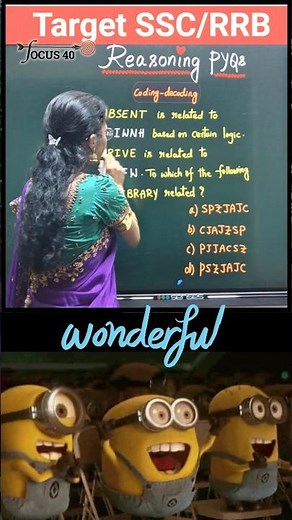 Target SSC/RRB
FOCUS 40
Reasoning PYQs
Coding-decoding
BSENT is related to
INNH based on certain logic.
RIVE is related to
FW. To which of the following
BRARY related?
a) SPZJAJC
b) CJAJZSP
c) PJJACSZ
d) PSZJAJC
wonderful